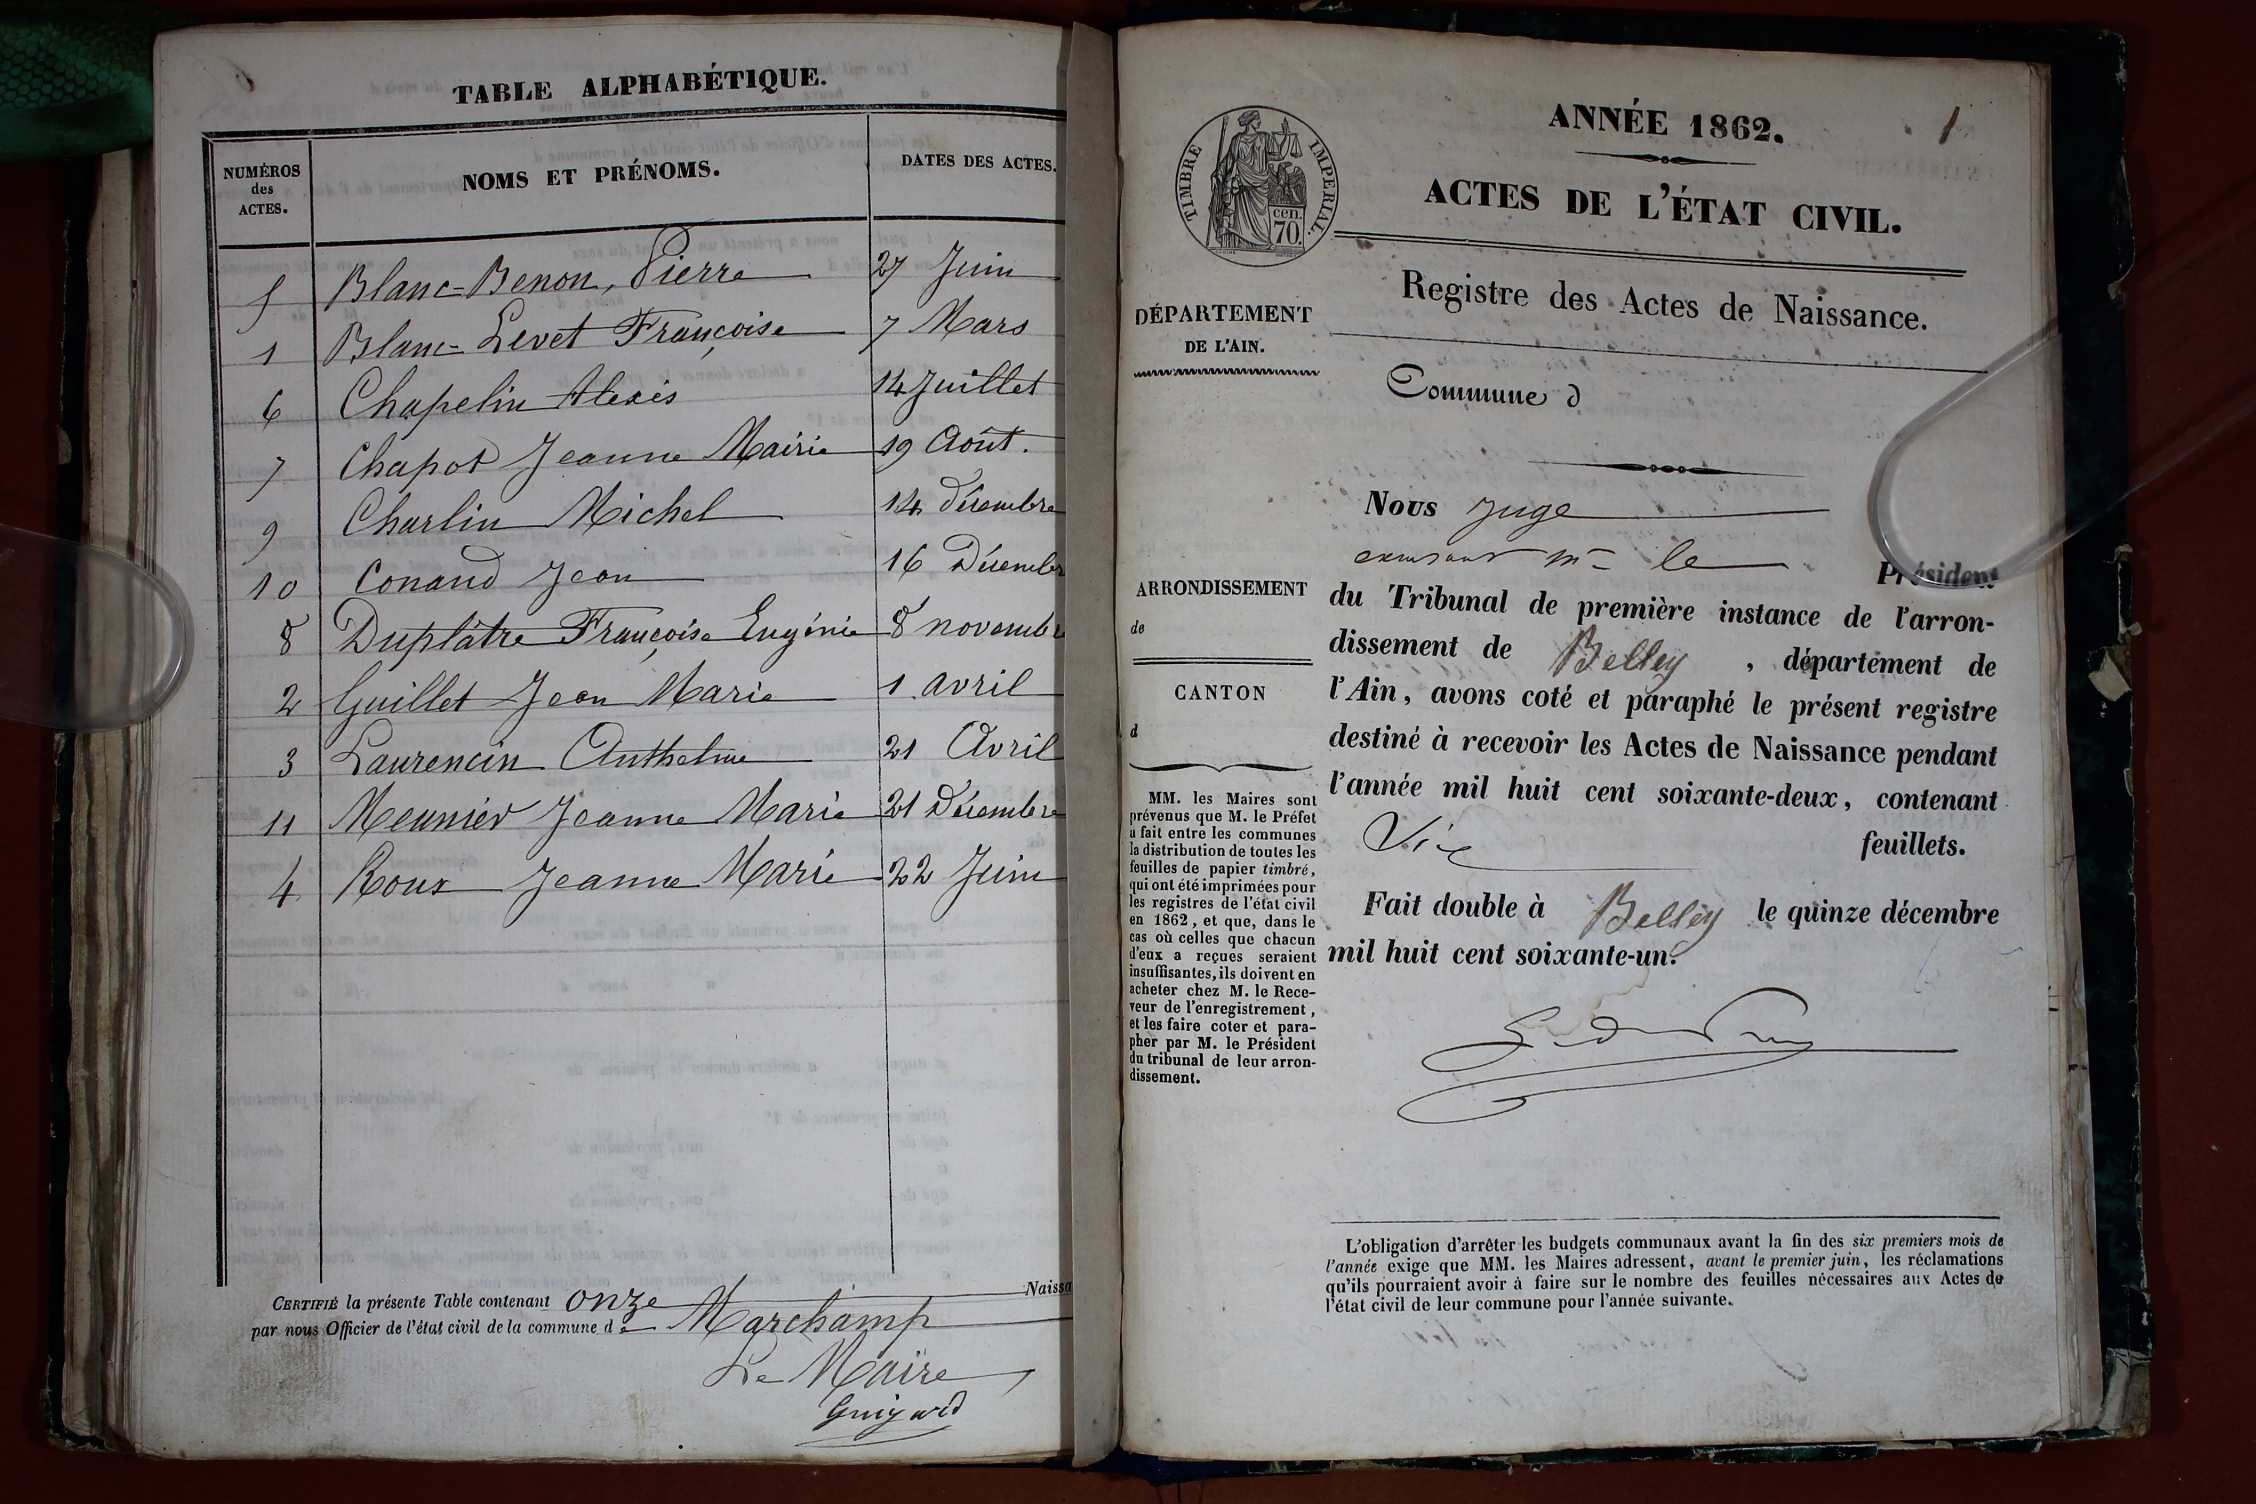 TABLE ALPHABÉTIQUE.
NUMÉROS des ACTES.
NOMS ET PRÉNOMS.
DATES DES ACTES.
5 Blanc-Benon, Pierre 27 Juin
1 Blanc-Levet Françoise 7 Mars
6 Chapelin Alexis 14 Juillet
7 Chapot Jeanne Mairie 19 Août.
9 Charlin Michel 14 décembre
10 Conand Jean 16 Décembr
8 Duplâtre Françoise Eugénie 8 novembr
2 Guillet Jean Marie 1 avril
3 Laurencin Anthelme 21 Avril
11 Meunier Jeanne Marie 21 Décembre
4 Roux Jeanne Marie 22 Juin
CERTIFIÉ la présente Table contenant onze Naissa
par nous Officier de l'état civil de la commune de Marchamp
Le Maire
Guigard
1
ANNÉE 1862.
ACTES DE L'ÉTAT CIVIL.
TIMBRE IMPERIAL.
cen.
70.
Registre des Actes de Naissance.
DÉPARTEMENT
DE L'AIN.
Commune d
ARRONDISSEMENT
de
CANTON
d
MM. les Maires sont
prévenus que M. le Préfet
a fait entre les communes
la distribution de toutes les
feuilles de papier timbré,
qui ont été imprimées pour
les registres de l'état civil
en 1862, et que, dans le
cas où celles que chacun
d'eux a reçues seraient
insuffisantes, ils doivent en
acheter chez M. le Rece-
veur de l'enregistrement,
et les faire coter et para-
pher par M. le Président
du tribunal de leur arron-
dissement.
Nous Juge
le Président
du Tribunal de première instance de l'arron-
dissement de Belley, département de
l'Ain, avons coté et paraphé le présent registre
destiné à recevoir les Actes de Naissance pendant
l'année mil huit cent soixante-deux, contenant
feuillets.
Fait double à Belley le quinze décembre
mil huit cent soixante-un.
L'obligation d'arrêter les budgets communaux avant la fin des six premiers mois de
l'année exige que MM. les Maires adressent, avant le premier juin, les réclamations
qu'ils pourraient avoir à faire sur le nombre des feuilles nécessaires aux Actes de
l'état civil de leur commune pour l'année suivante.